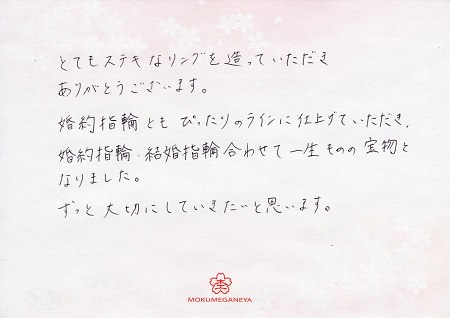 とてもステキなリングを造っていただき
ありがとうございます。
婚約指輪ともぴったりのラインに仕上げていただき、
婚約指輪・結婚指輪合わせて一生ものの宝物と
なりました。
ずっと大切にしていきたいと思います。
MOKUMEGANEYA